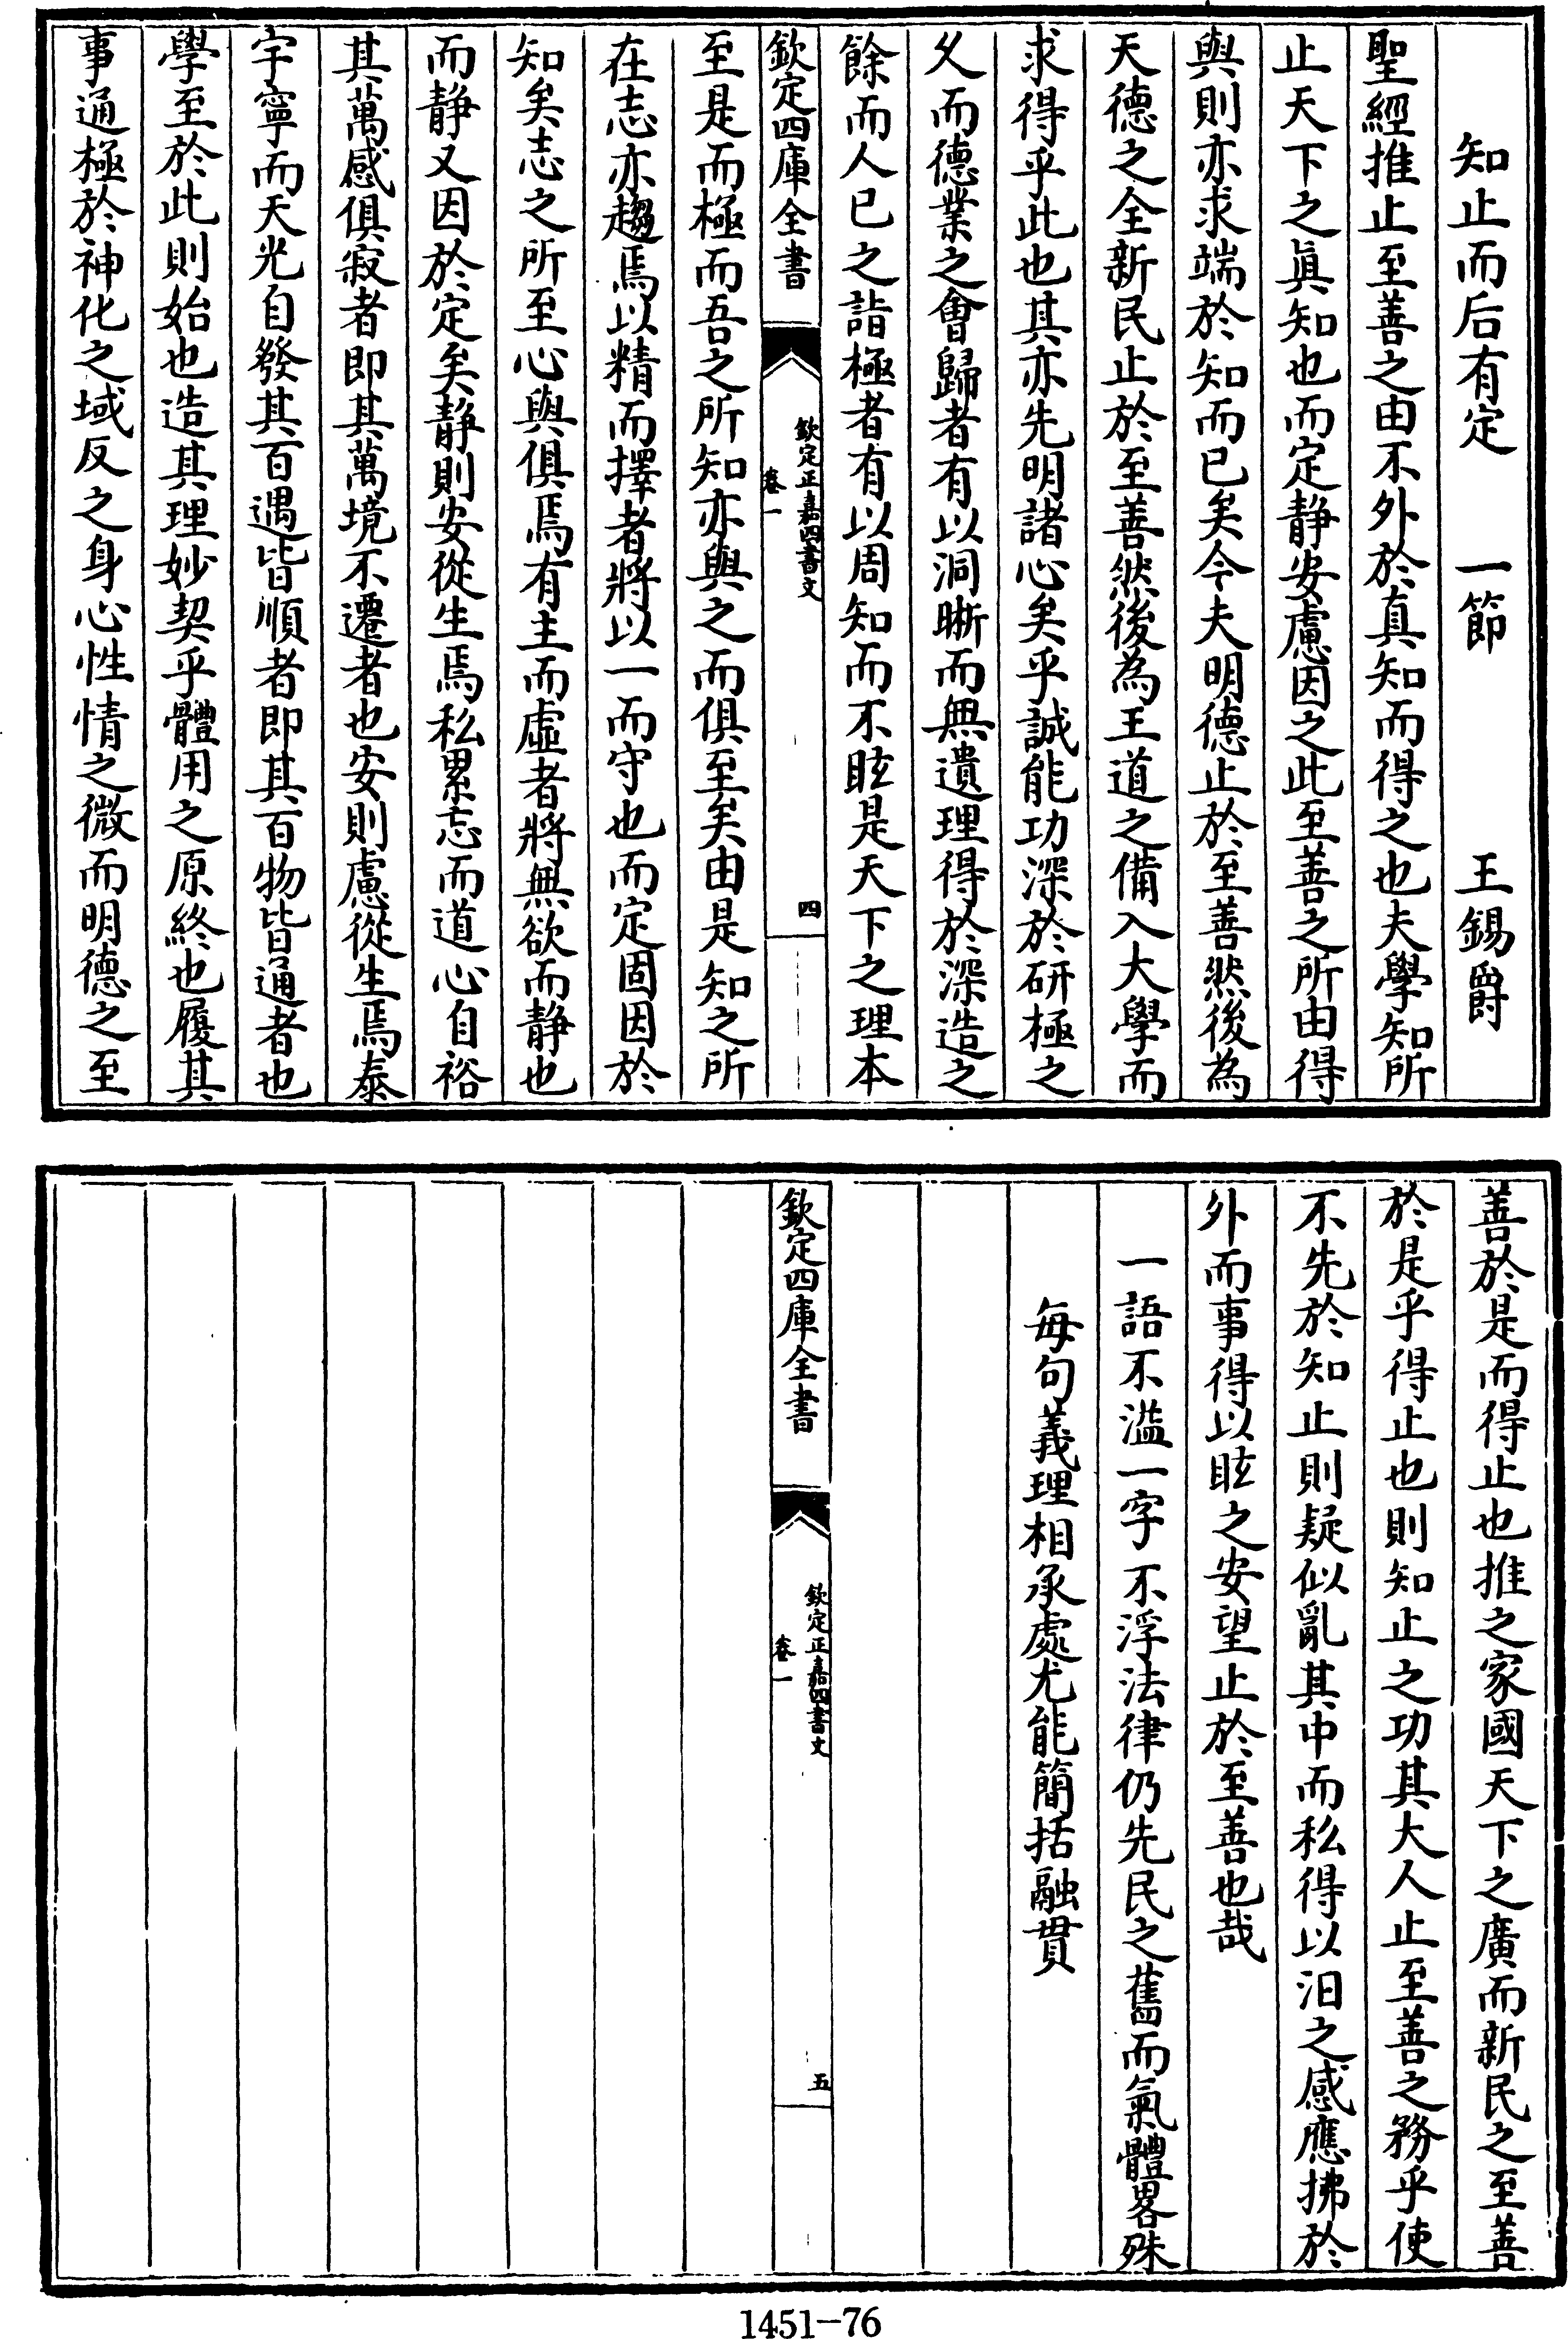 知止而后有定　一節　王錫爵
聖經推止至善之由不外於真知而得之也夫學知所
止天下之真知也而定静安慮因之此至善之所由得
與則亦求端於知而已矣今夫明德止於至善然後為
天德之全新民止於至善然後為王道之備入大學而
求得乎此也其亦先明諸心矣乎誠能功深於研極之
久而德業之會歸者有以洞晣而無遺理得於深造之
餘而人已之詣極者有以周知而不眩是天下之理本
欽定四庫全書
欽定正嘉四書文
卷一
四
至是而極而吾之所知亦與之而俱至矣由是知之所
在志亦趨焉以精而擇者將以一而守也而定固因於
知矣志之所至心與俱焉有主而虛者將無欲而静也
而静又因於定矣静則安從生焉私累忘而道心自裕
其萬感俱寂者即其萬境不遷者也安則慮從生焉泰
宇寧而天光自發其百遇皆順者即其百物皆通者也
學至於此則始也造其理妙契乎體用之原終也履其
事通極於神化之域反之身心性情之微而明德之至
善於是而得止也推之家國天下之廣而新民之至善
於是乎得止也則知止之功其大人止至善之務乎使
不先於知止則疑似亂其中而私得以汨之感應拂於
外而事得以眩之安望止於至善也哉
一語不溢一字不浮法律仍先民之舊而氣體畧殊
每句義理相承處尤能簡括融貫
欽定四庫全書
欽定正嘉四書文
卷一
五
1451-76